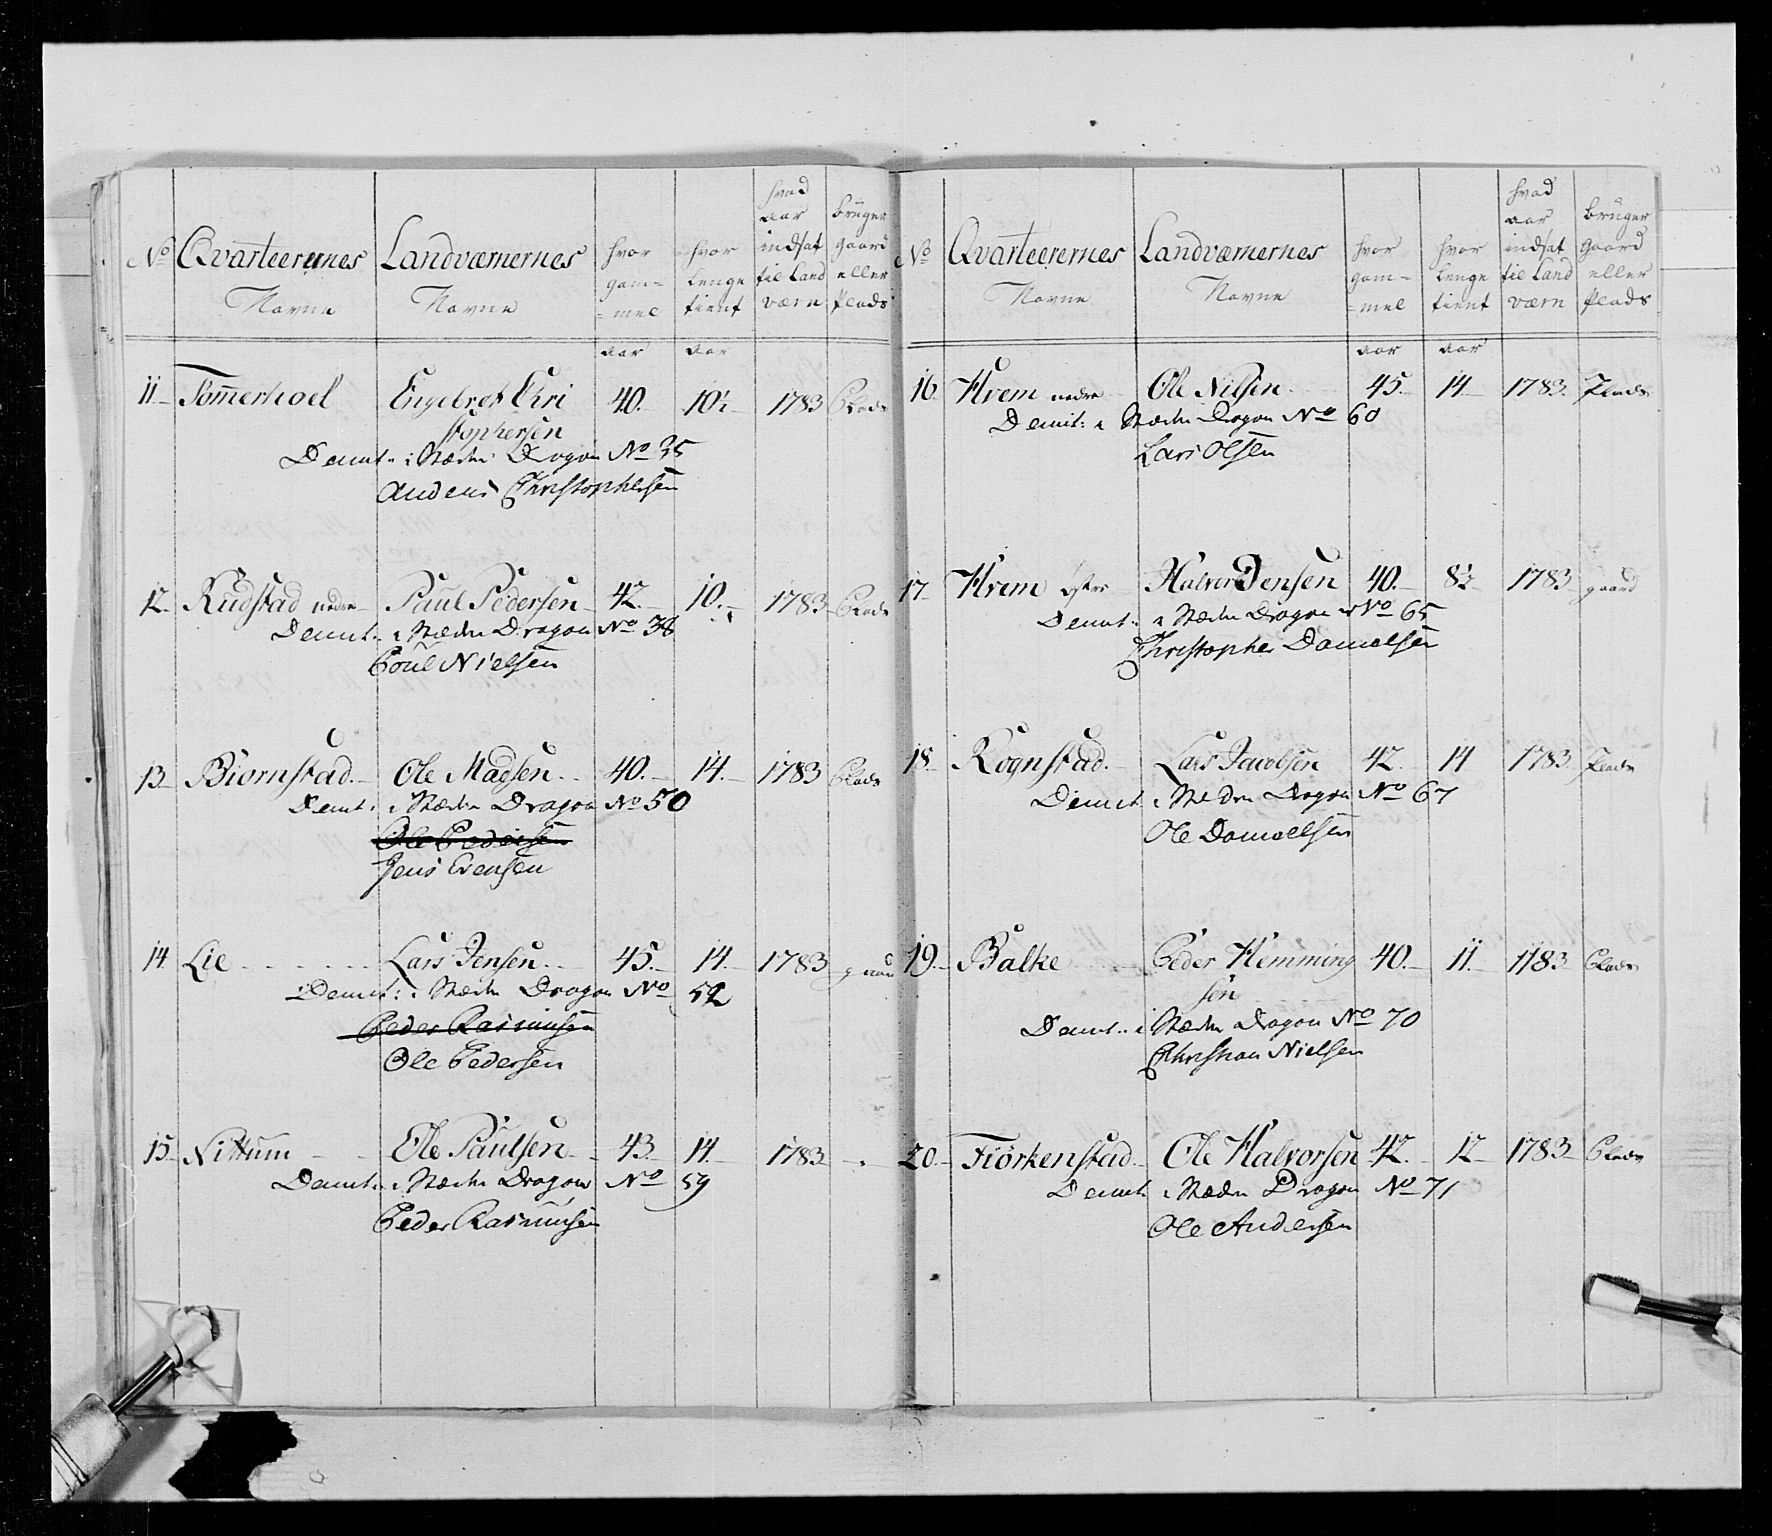 No Qvarteerernes Navne Landværnernes Navne hvor gam=mel hvor lenge tient hvad aar indsat til Land værn bruger gaard eller Plads
aar aar
11. Tømmerhoel Engelret Chri 40. 10½ 1783 Plads
stophersen
Demit: i Stæden Dragon No 35
Anders Christophersen
12 Rudstad nedre Paul Pedersen 42. 10. 1783 Plads
Demit: i Stæden Dragon No 38
Poul Nielsen
13 Biørnstad. Ole Madsen. 40. 14. 1783 Plads
Demit: i Stæden Dragon No 50
Ole Pedersen
Jens Evensen
14 Lie Lars Jensen. 45. 14. 1783 gaard
Demit: i Stæden Dragon No 52
Peder Rasmusen
Ole Pedersen
15 Nittum Ole Paulsen 43 14 1783
Demit: i Stæden Dragon No 59
Peder Rasmusen
No Qvarteerernes Navne Landværnernes Navne hvor gam=mel hvor lenge tient hvad aar indsat til Land værn bruger gaard eller Plads
aar aar
16 Hvem nedre Ole Nilsen 45. 14 1783. Plads
Demit: i Stæden Dragon No 60
Lars Olsen
17 Hvem øfre Halvor Jensen 40. 8½ 1783 gaard
Demit: i Stæden Dragon No 65
Christopher Danielsen
18. Rognstad. Lars Jacobsen 42. 14 1783 Plads
Demit i Stæden Dragon No 67
Ole Danielsen
19. Balke Peder Hemming 40. 11. 1783 Plads
sen
Demit: i Stæden Dragon No 70
Christian Nielsen
20. Fiørkenstad. Ole Halvorsen 42. 12 1783 Plads
Demit: i Stæden Dragon No 71
Ole Andersen